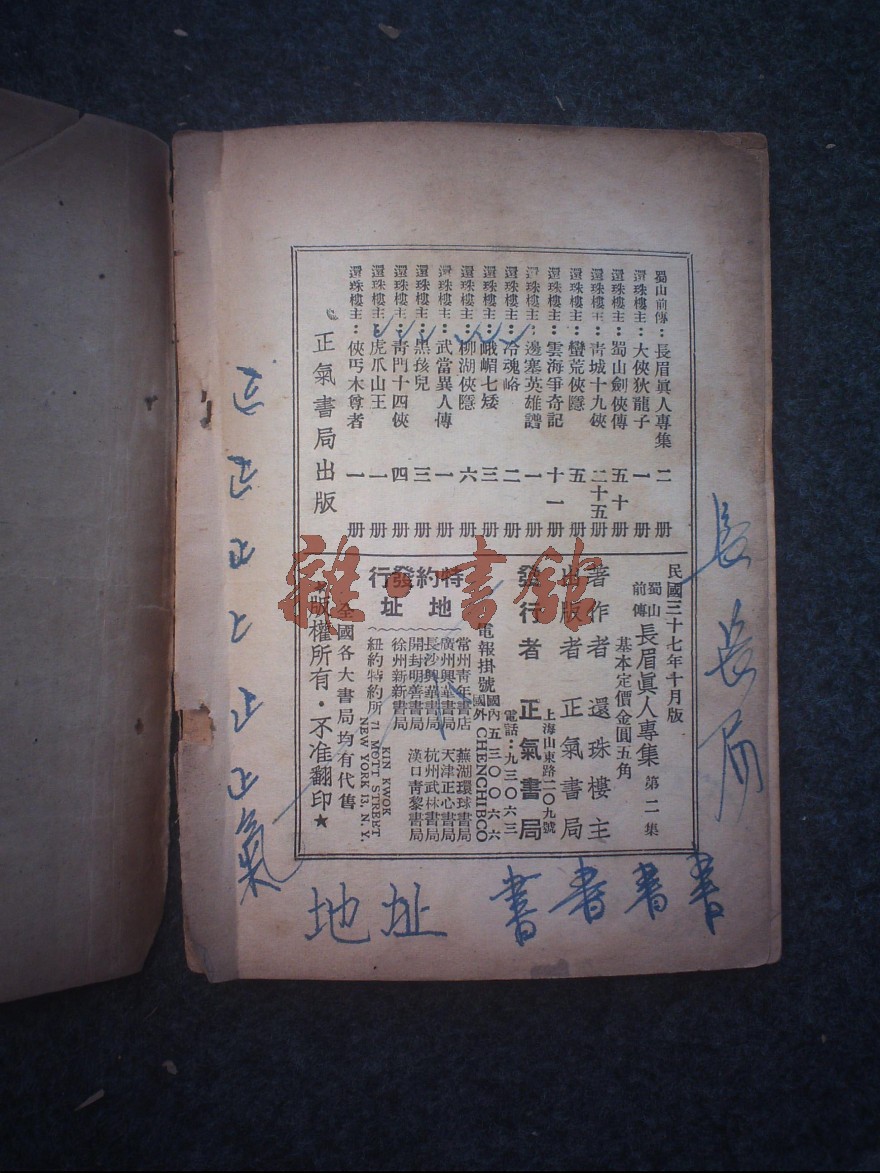 蜀山前傳：長眉眞人專集 二册
還珠樓主：大俠狄龍子 一册
還珠樓主：蜀山劍俠傳 五十册
還珠樓主：青城十九俠 二十五册
還珠樓主：蠻荒俠隱 五册
還珠樓主：雲海爭奇記 十一册
還珠樓主：邊塞英雄譜 一册
還珠樓主：冷魂峪 二册
還珠樓主：峨嵋七矮 三册
還珠樓主：柳湖俠隱 六册
還珠樓主：武當異人傳 一册
還珠樓主：黑孩兒 三册
還珠樓主：青門十四俠 四册
還珠樓主：虎爪山王 一册
還珠樓主：俠丐木尊者 一册
正氣書局出版
民國三十七年十月版
蜀山前傳 長眉眞人專集 第二集
基本定價金圓五角
著作者 還珠樓主
出版者 正氣書局
發行者 正氣書局
上海山東路二〇九號
電話：九三〇六三
電報掛號 國內五三〇〇六六
國外CHENCHIBCO
特約發行
地址
常州青年書店 蕪湖環球書局
廣州興華書局 天津正心書局
長沙興華書局 杭州武林書局
開封明善書局 漢口青黎書局
徐州新新書局
紐約特約所
KIN KWOK
71 MOTT STREET
NEW YORK 13, N.Y.
全國各大書局均有代售
★版權所有·不准翻印★
雜·書館
長長局
正正正上正正氣
地址 書書書書